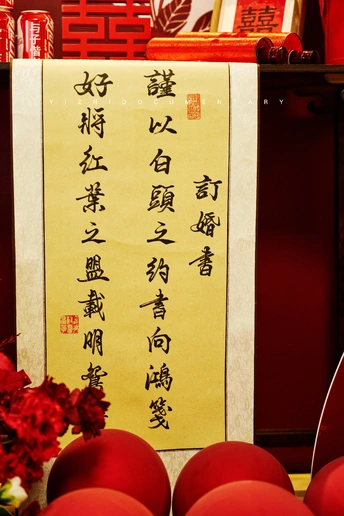 訂婚書
謹以白頭之約書向鴻箋
好將紅葉之盟載明鴛
YIZHIDOCUMENTARY
与子偕
囍
囍